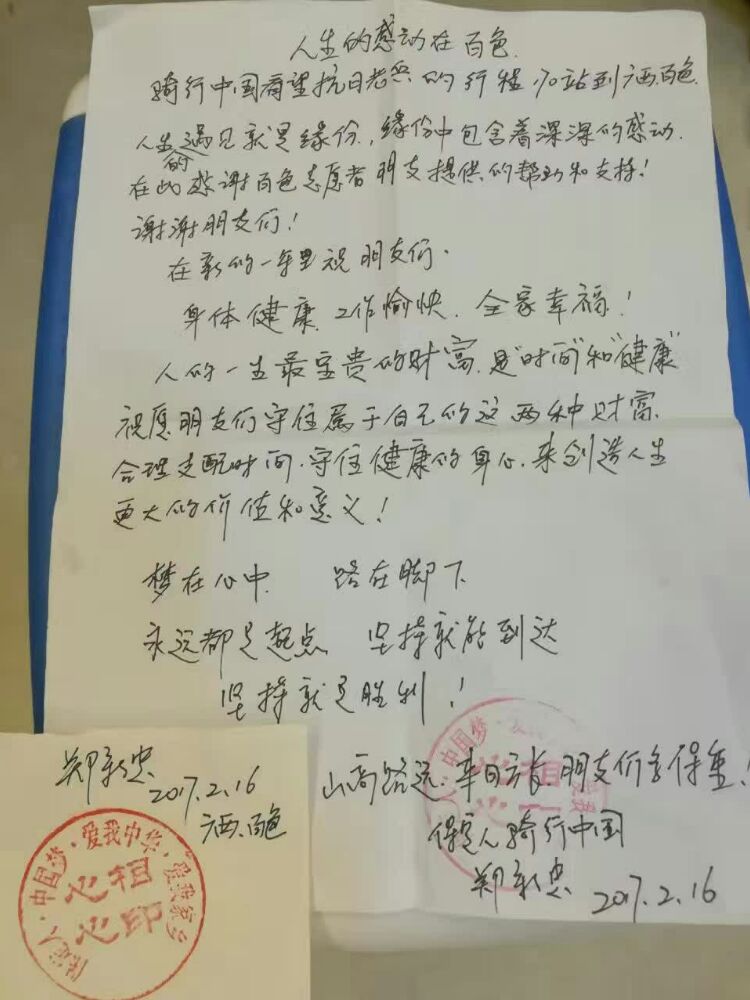 人生的感动在百色
骑行中国看望抗日老兵的行程70站到广西.百色.
人生的遇见就是缘份,缘份中包含着深深的感动.
在此感谢百色志愿者朋友提供的帮助和支持!
谢谢朋友们!
在新的一年里祝朋友们.
身体健康.工作愉快.全家幸福!
人的一生最宝贵的财富.是"时间"和"健康"
祝愿朋友们守住属于自己的这两种财富.
合理支配时间.守住健康的身心.来创造人生
更大的价值和意义!
梦在心中. 路在脚下.
永远都是起点 坚持就能到达
坚持就是胜利!
山高路远.来日方长.朋友们多保重!
保定人骑行中国
郑新忠 2017.2.16
郑新忠
2017.2.16
广西.百色
保定人·中国梦·爱我中华·爱我家乡
心相
心印